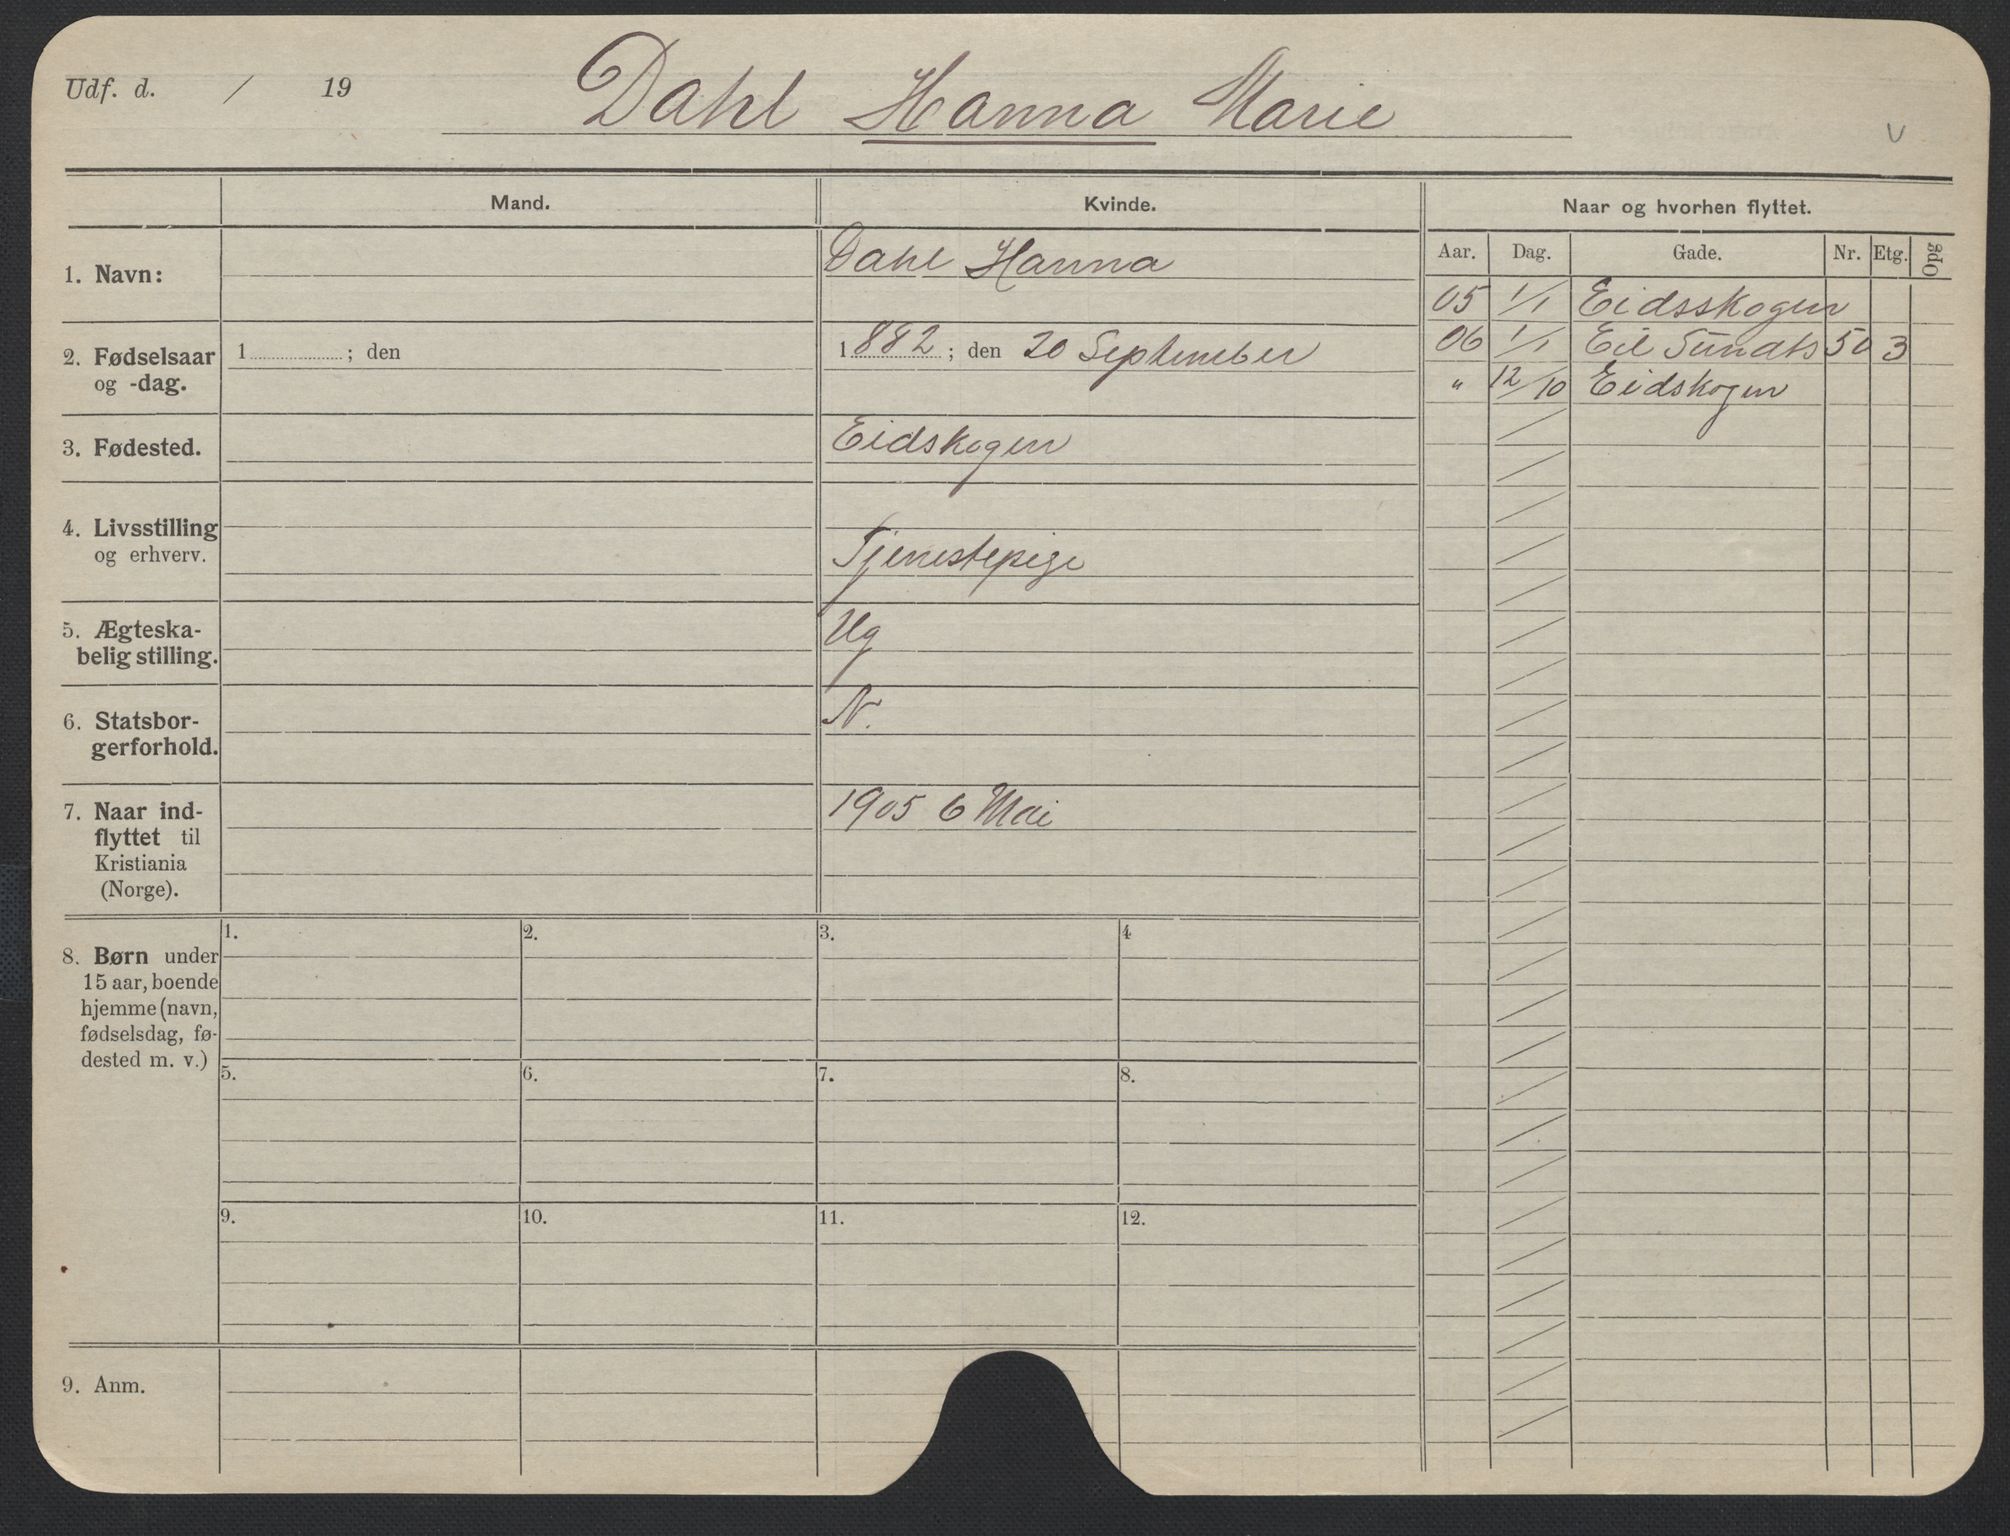 Udf. d. / 19
Dahl Hanna Marie
v
Mand. Kvinde. Naar og hvorhen flyttet.
Aar. Dag. Gade. Nr. Etg. Opg
1. Navn: Dahl Hanna
05 1/1 Eidsskogen
06 1/1 Eil Sundts 50 3
„ 12/10 Eidskogen
2. Fødselsaar 1 ; den 1882 ; den 20 September
og -dag.
3. Fødested. Eidskogen
4. Livsstilling
og erhverv. Tjenestepige
5. Ægteska- Ug
belig stilling.
6. Statsbor- N.
gerforhold.
7. Naar ind- 1905 6 Mai
flyttet til
Kristiania
(Norge).
1. 2. 3. 4
8. Børn under
15 aar, boende
hjemme (navn,
fødselsdag, fø-
dested m. v.)
5. 6. 7. 8.
9. 10. 11. 12.
9. Anm.